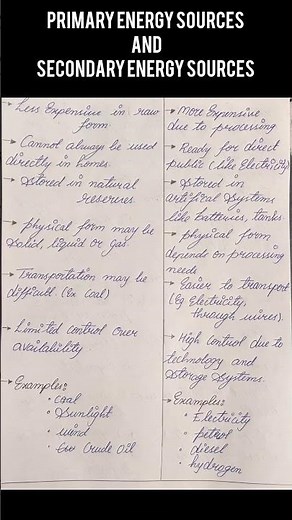 PRIMARY ENERGY SOURCES
AND
SECONDARY ENERGY SOURCES
→ Less Expensive in raw
form
→ Cannot always be used
directly in homes.
→ Stored in natural
reserves
→ physical form may be
solid, liquid or gas.
→ Transportation may be
difficult (Ex Coal)
→ Limited control over
availability
→ Examples:
• coal
• Sunlight
• wind
• Crude Oil
→ More Expensive
due to processing
→ Ready for direct
public (like Electricity)
→ Stored in
artifical Systems
like batteries, tanks
→ physical form
depends on processing
needs
→ Easier to transport
(Eg Electricity,
through wires).
→ High Control due to
technology and
Storage Systems.
→ Examples:
• Electricity
• petrol
• diesel
• hydrogen